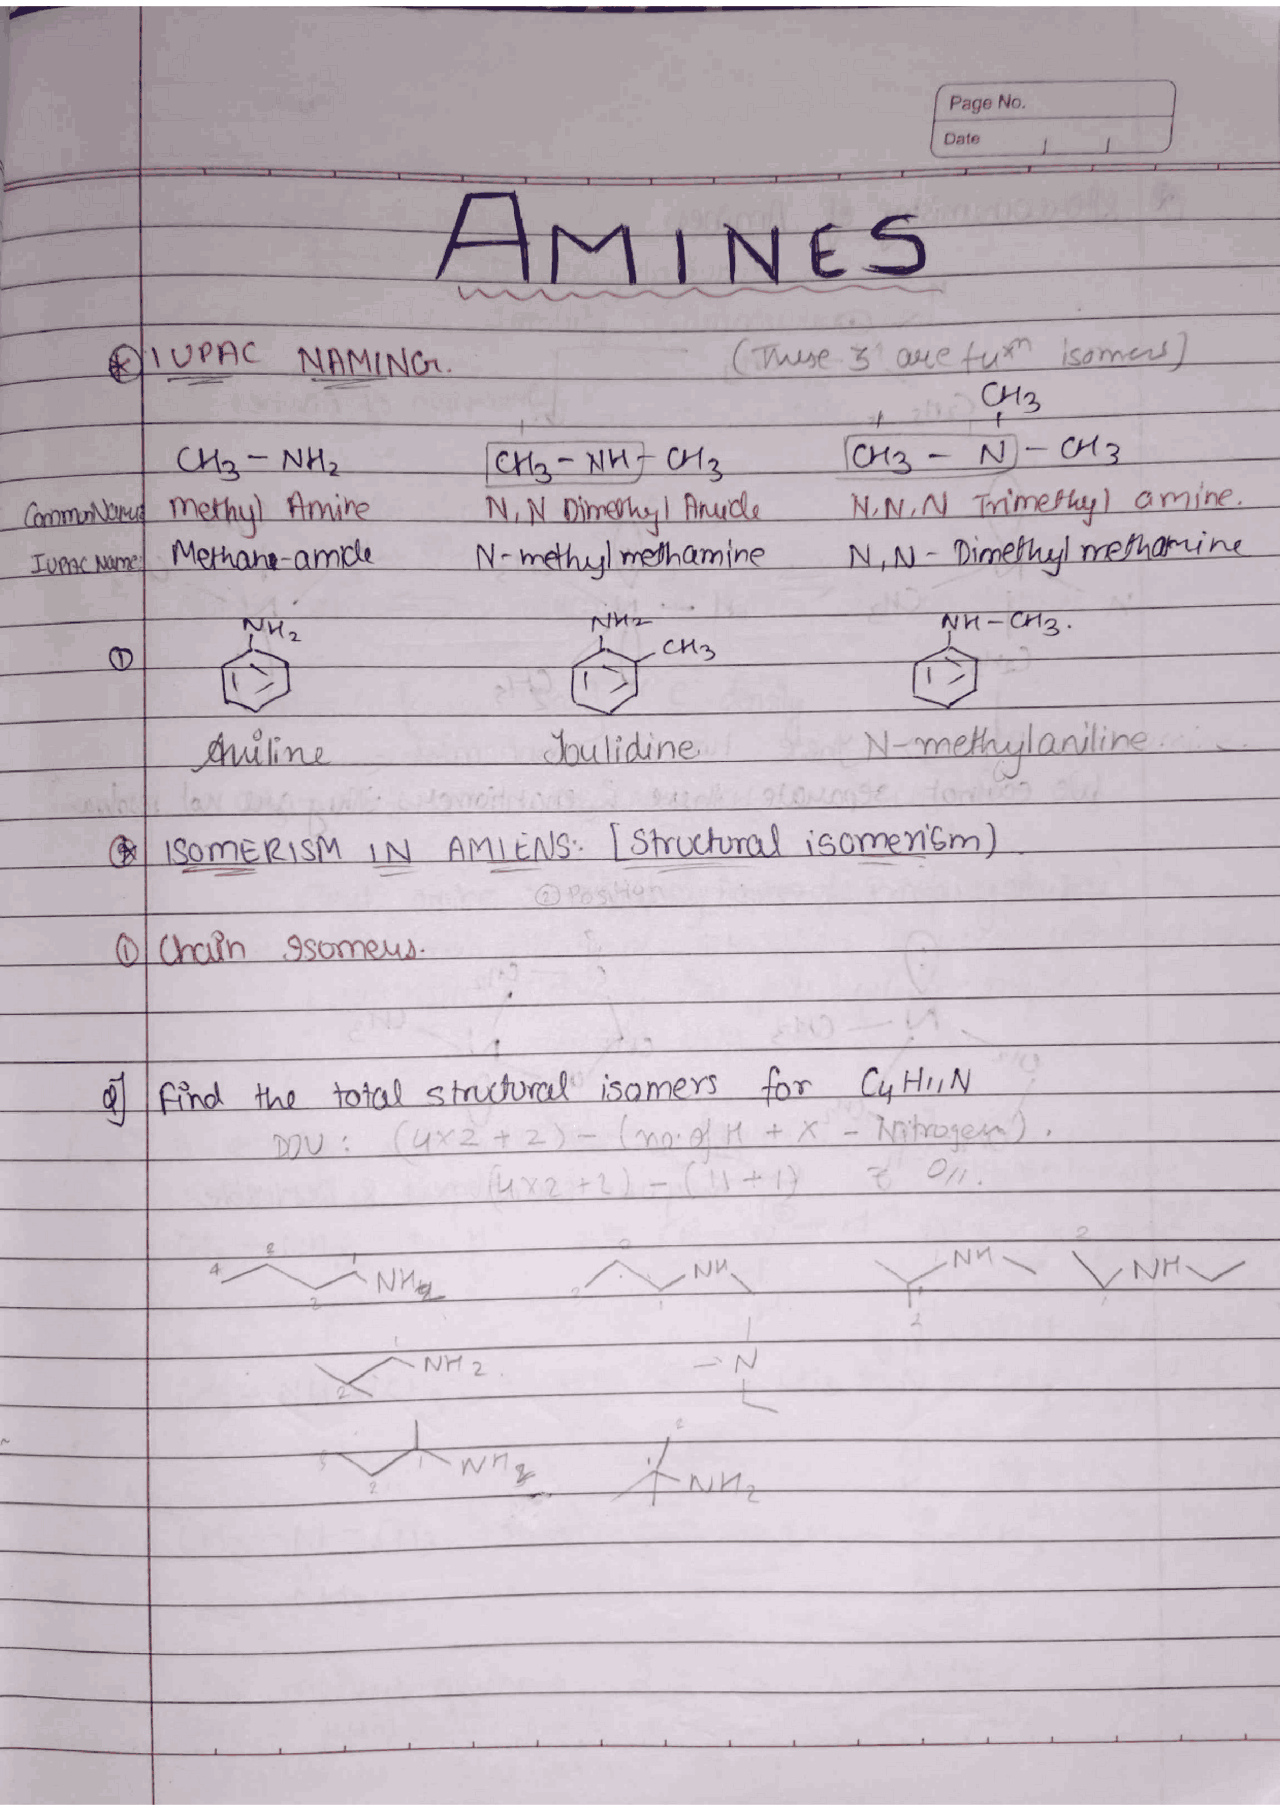 Page No.
Date
AMINES
IUPAC NAMING.
(These 3 are fuxn isomers)
CH3
CH3 - NH2 CH3 - NH - CH3 CH3 - N - CH3
Common Name Methyl Amine N, N Dimethyl Amide N, N, N Trimethyl amine.
IUPAC Name: Methane-amide N-methyl methamine N, N - Dimethyl methamine
NH2 NH2 NH - CH3.
① CH3
Aniline Toulidine N-methylaniline
ISOMERISM IN AMIENS: [Structural isomerism)
① Chain Isomers.
Q] Find the total structural isomers for C4H11N
DOU : (4x2+2) - (no. of H + X - Nitrogen).
(4x2+2) - (11+1) 0//.
4 3 2 1 NH2 3 2 1 NH 1 NH 2 2 1 NH
1 NH2 2 N
3 2 1 NH2 2 1 NH2